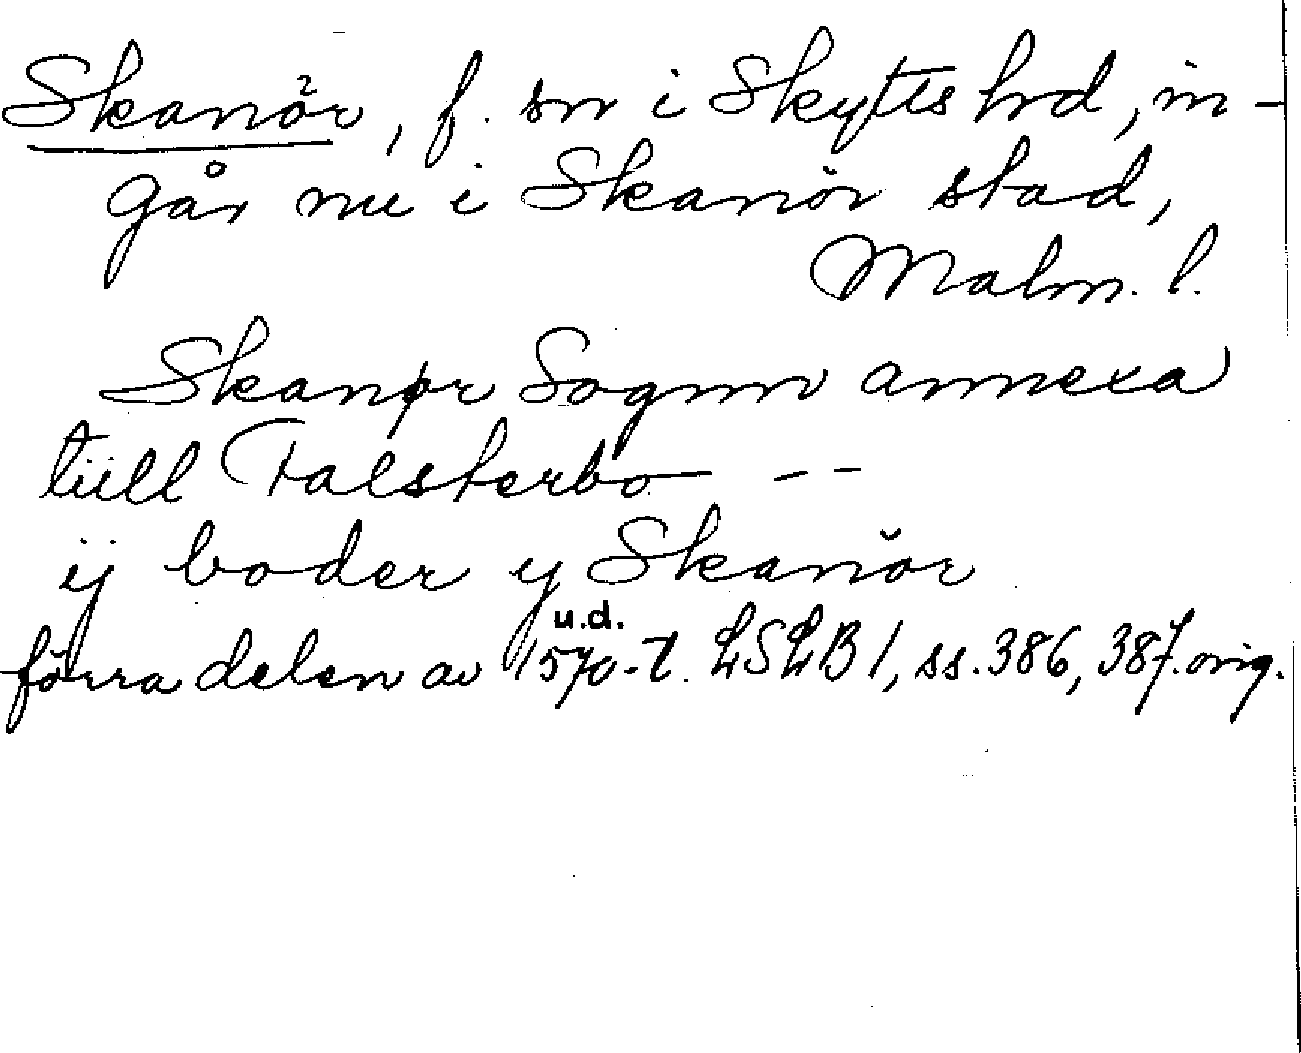 Skanör, f. sn i Skytts hrd, in-
går nu i Skanör stad,
Malm. l.
Skanør Sognn annexa
tiill Falsterbo - -
ij boder y Skanör
u.d.
förra delen av 1570-t. LSLB 1, ss. 386, 387. orig.